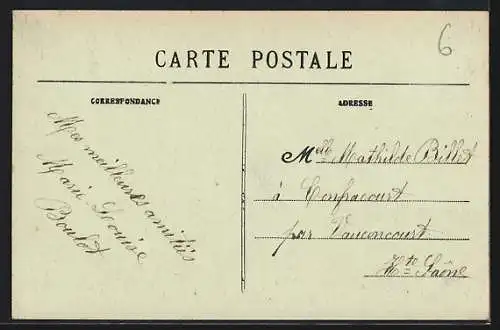 6
CARTE POSTALE
CORRESPONDANCE
Mes meilleures amitiés
Marie-Louise
Boudot
ADRESSE
Melle Mathilde Billet
à Confracourt
par Vauconcourt
Hte Saône